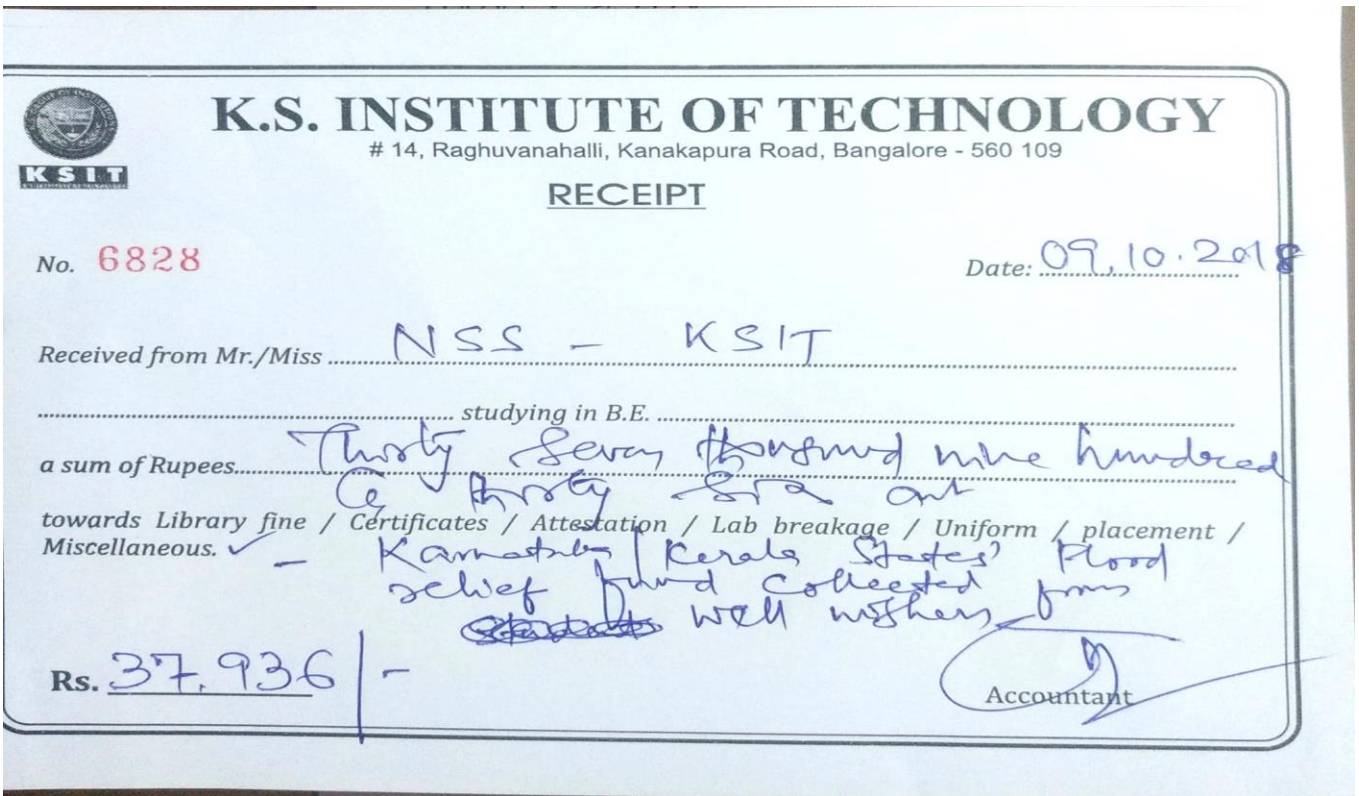 K.S. INSTITUTE OF TECHNOLOGY
# 14, Raghuvanahalli, Kanakapura Road, Bangalore - 560 109
KSIT
RECEIPT
No. 6828
Date: 09.10.2018
Received from Mr./Miss NSS - KSIT
studying in B.E.
a sum of Rupees Thirty Seven thousand nine hundred
thirty Six
towards Library fine / Certificates / Attestation / Lab breakage / Uniform / placement /
Miscellaneous. ✓ - Karnataka / Kerala States' Flood
relief fund collected from
well wishers
Rs. 37,936/-
Accountant